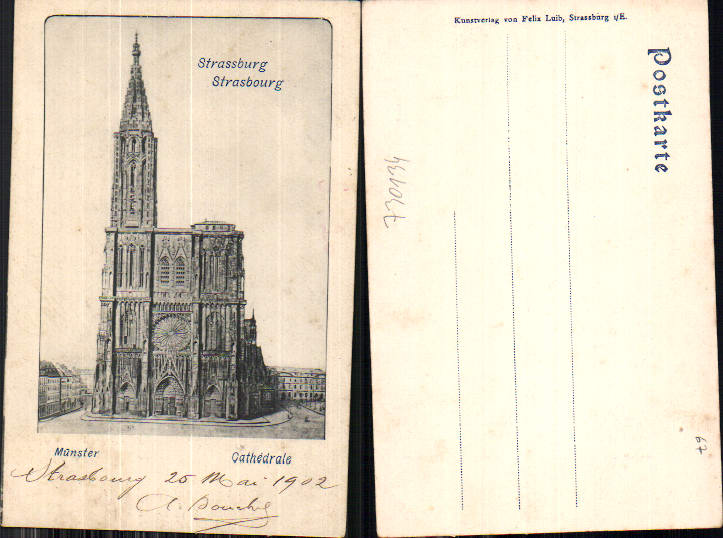 Strassburg
Strasbourg
Münster
Cathédrale
Strasbourg 25 Mai 1902
Kunstverlag von Felix Luib, Strassburg i/E.
Postkarte
67